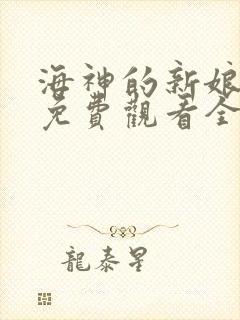 海神的新娘
免費觀看全
龍泰星